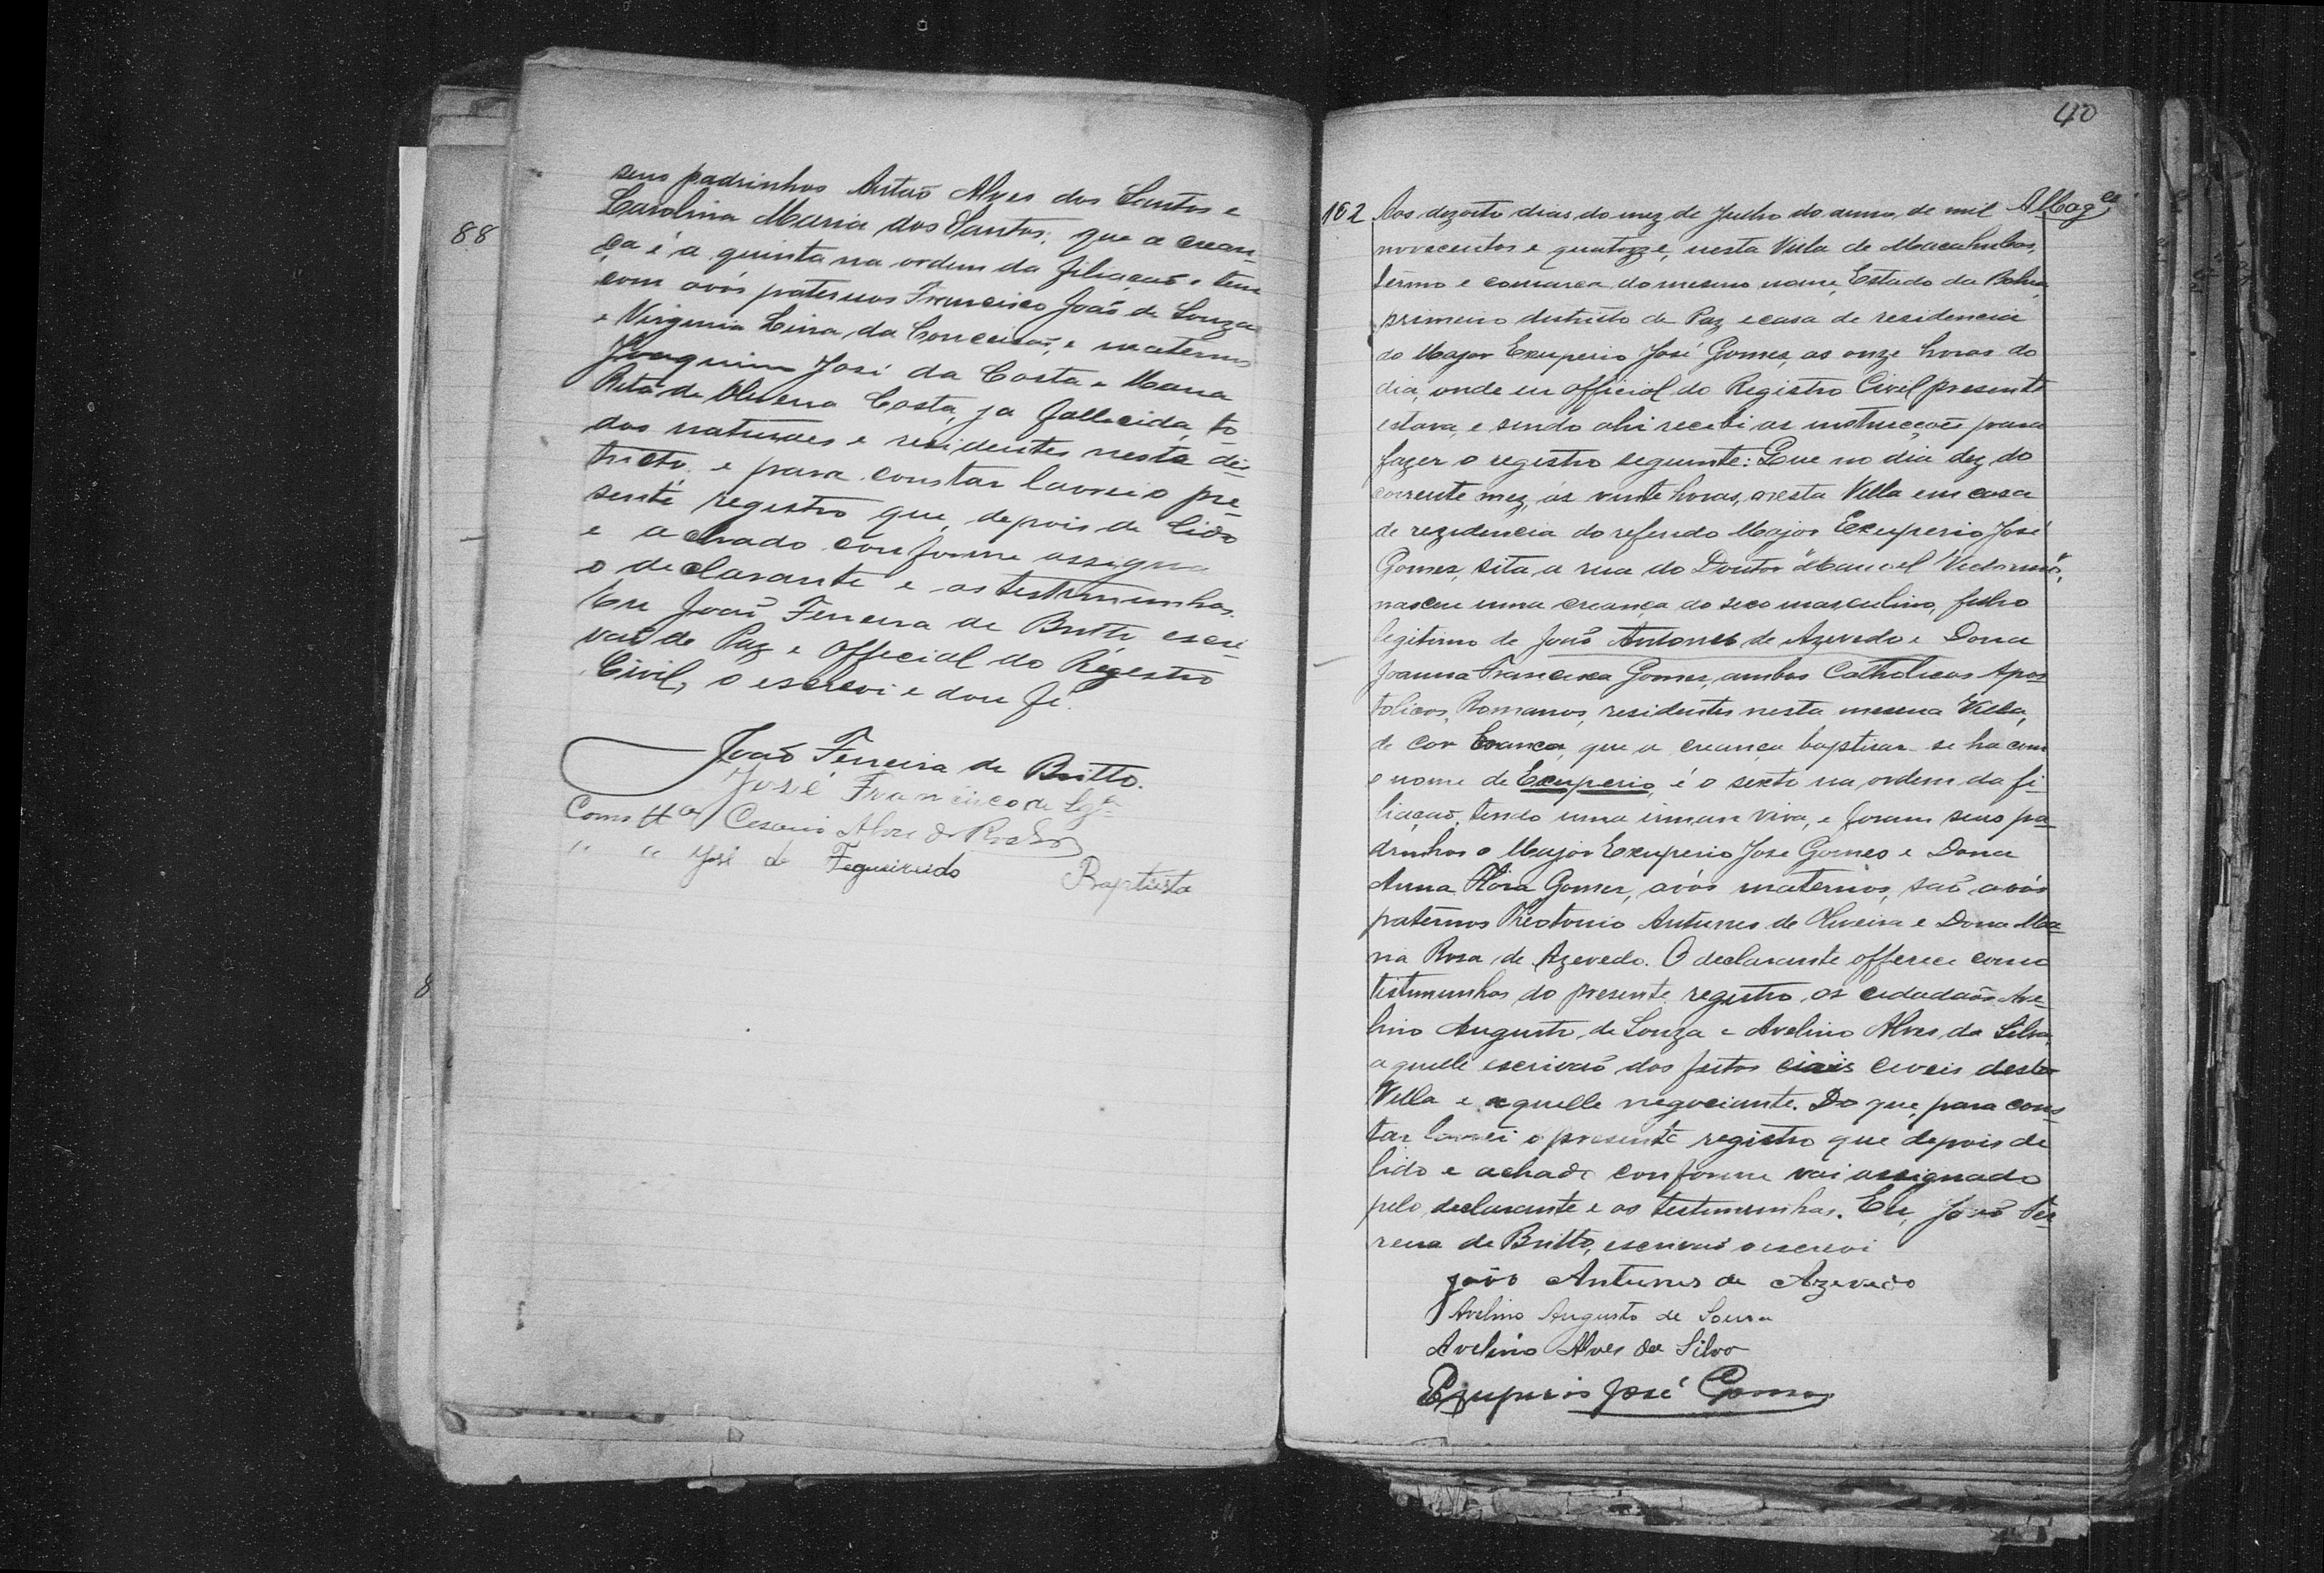 88
seus padrinhos Antaõ Alves dos Santos e
Carolina Maria dos Santos; que a crean-
ça é a quinta na ordem da filiaçaõ e tem
com avós paternos Francisco Joaõ de Souza
e Virginia Lina da Conceicaõ, e maternos
Joaquim José da Costa e Maria
Rita de Oliveira Costa, ja fallecida, to-
dos naturaes e residentes neste dis-
tricto. e para constar lavrei o pre-
sente registro que, depois de lido
e achado conforme assigna
o declarante e as testimunhas.
Eu Joaõ Ferreira de Britto escri-
vaõ de Paz e Official do Registro
Civil, o escrevi e dou fé.
Joaõ Ferreira de Britto.
José Francisco de
Como tta Cesario Alves da Rocha
" " José de Fegueireido Baptista
8
40
102 Aos dezoito dias do mez de Julho do anno de mil
novecentos e quatorze, nesta Villa de Macahubas,
têrmo e comarca do mesmo nome, Estado da Bahia,
primeiro districto de Paz e casa de residencia
do Major Exuperio José Gomes, as onze horas do
dia, onde eu official do Registro Civel presente
estava, e sendo ahi recebi as instrucções para
fazer o registro seguinte: Que no dia dez do
corrente mez, ás vinte horas, nesta Villa em casa
de rezidencia do referido Major Exuperio José
Gomes, sita a rua do Doutor "Manoel Victorino",
nasceu uma creança do sexo masculino, filho
legitimo de Joaõ Antones de Azevedo e Dona
Joanna Francisca Gomes, ambos Catholicos Apos
tolicos, Romanos, residentes nesta mesma Villa,
de cor branca, que a creança baptisar se ha com
o nome de Exuperio, é o sexto na ordem da fi-
liaçaõ, tendo uma irman viva, e foram seus pa-
drinhos o Major Exuperio Jose Gomes e Dona
Anna Flóra Gomes, avós maternos, saõ avós
paternos Theotonio Antunes de Oliveira e Dona Ma-
ria Rosa de Azevedo. O declarante offerece como
testimunhas do presente registro os cidadaõs Ave-
lino Augusto de Souza e Avelino Alves da Silva,
aquelle escrivaõ dos feitos civeis desta
Villa e aquelle negociante. Do que, para cons
tar lavrei o presente registro que depois de
lido e achado conforme vai assignado
pelo declarante e as testimunhas. Eu, Joaõ Fer
reira de Britto, escrivaõ o escrevi
João Antunes de Azevedo
Avelino Augusto de Sousa
Avelino Alves da Silva
Exuperio José Gomes